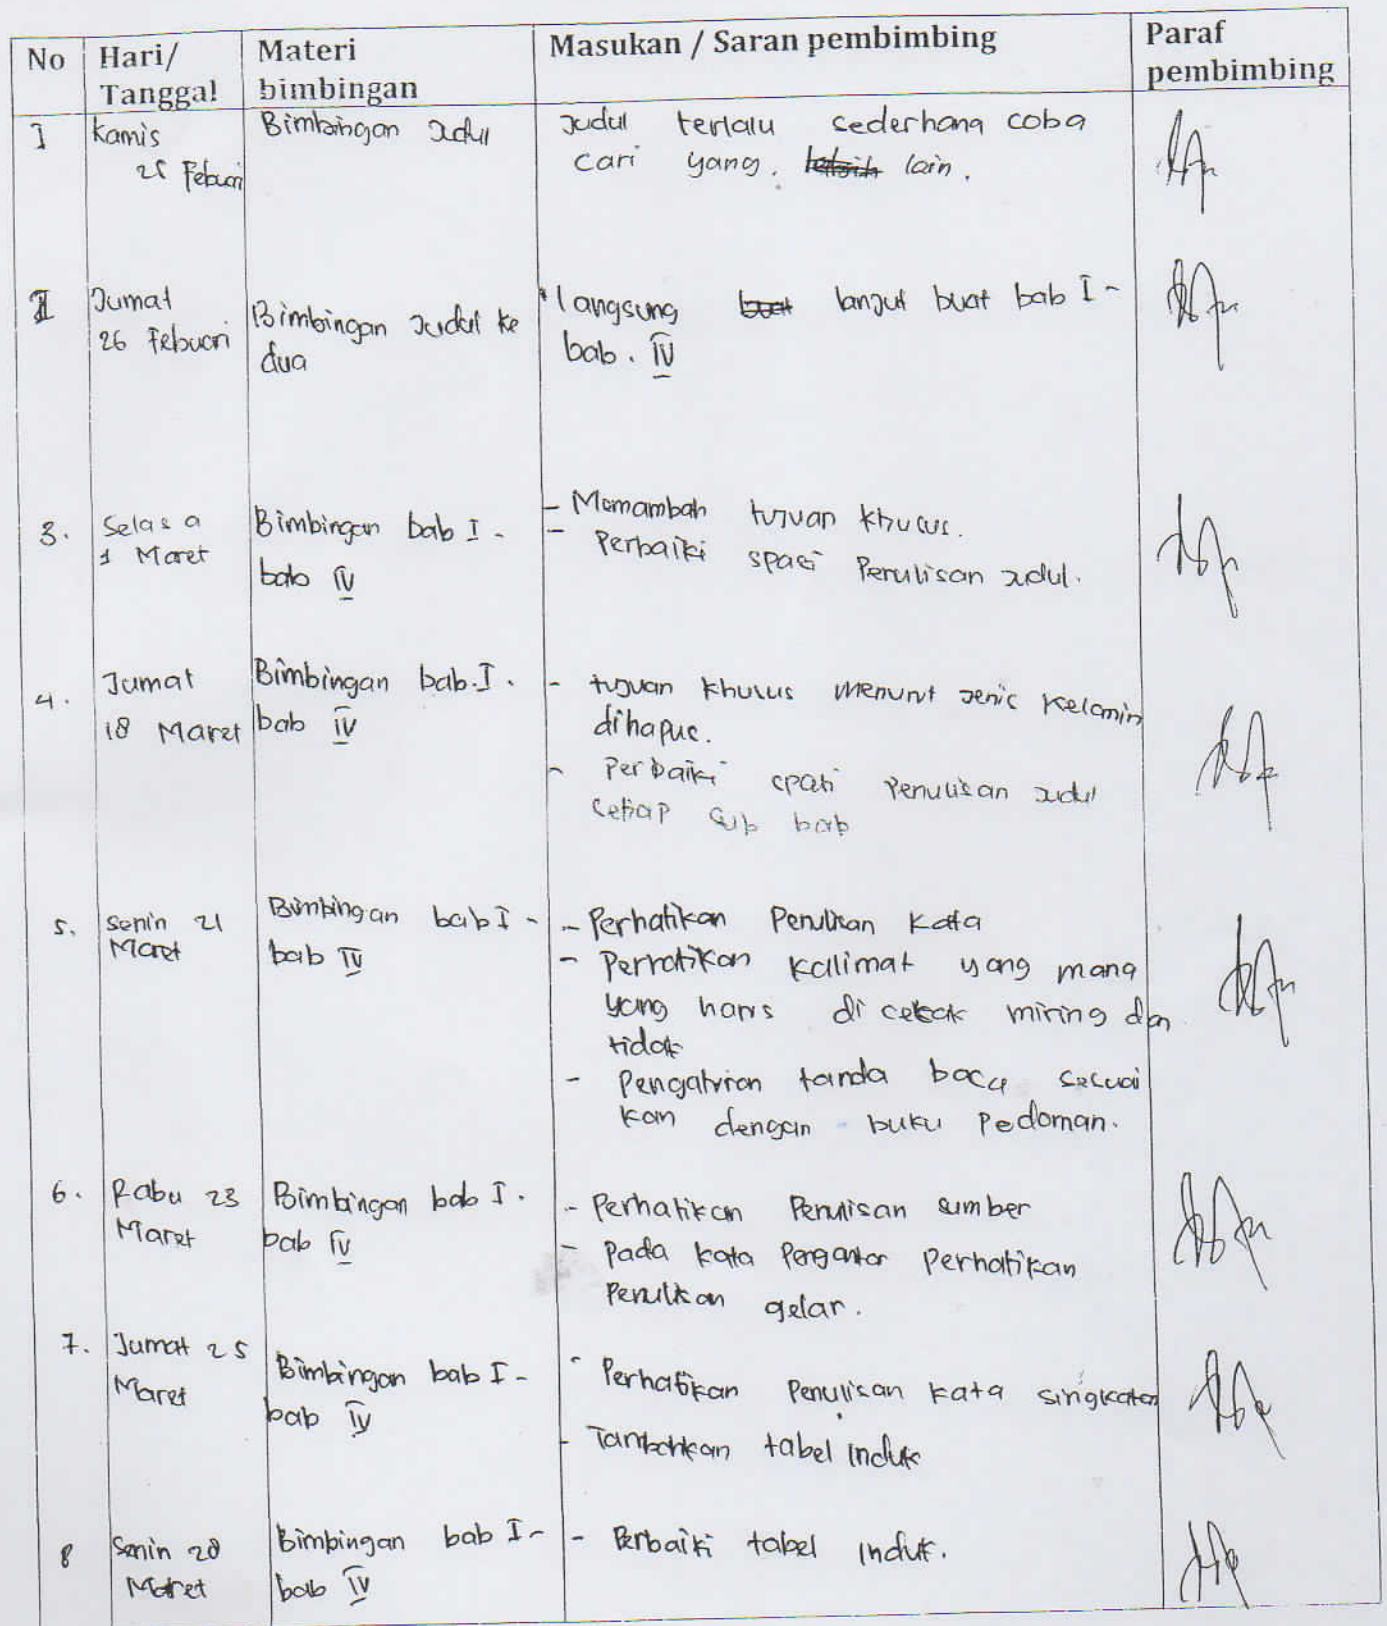 No Hari/ Tanggal Materi bimbingan Masukan / Saran pembimbing Paraf pembimbing
I Kamis 25 Febuari Bimbingan Judul Judul terlalu sederhana coba
cari yang. lain.
II Jumat 26 Febuari Bimbingan Judul ke dua langsung buat lanjut buat bab I -
bab. IV
3. Selasa 1 Maret Bimbingan bab I - bab IV - Memambah tujuan khusus.
- Perbaiki spasi Penulisan judul.
4. Jumat 18 Maret Bimbingan bab.I. bab IV - tujuan khusus menurut jenis kelamin
dihapus.
- Perbaiki spasi Penulisan judul
setiap sub bab
5. Senin 21 Maret Bimbingan bab I - bab IV - Perhatikan Penulisan Kata
- Perhatikan kalimat yang mana
yang harus di cetak miring dan
tidak
- Pengaturan tanda baca sesuai
kan dengan buku Pedoman.
6. Rabu 23 Maret Bimbingan bab I. bab IV - Perhatikan Penulisan sumber
- Pada kata Pengantar Perhatikan
Penulisan gelar.
7. Jumat 25 Maret Bimbingan bab I - bab IV - Perhatikan Penulisan kata singkatan
- Tambahkan tabel induk
8 Senin 28 Maret Bimbingan bab I - bab IV - Perbaiki tabel induk.